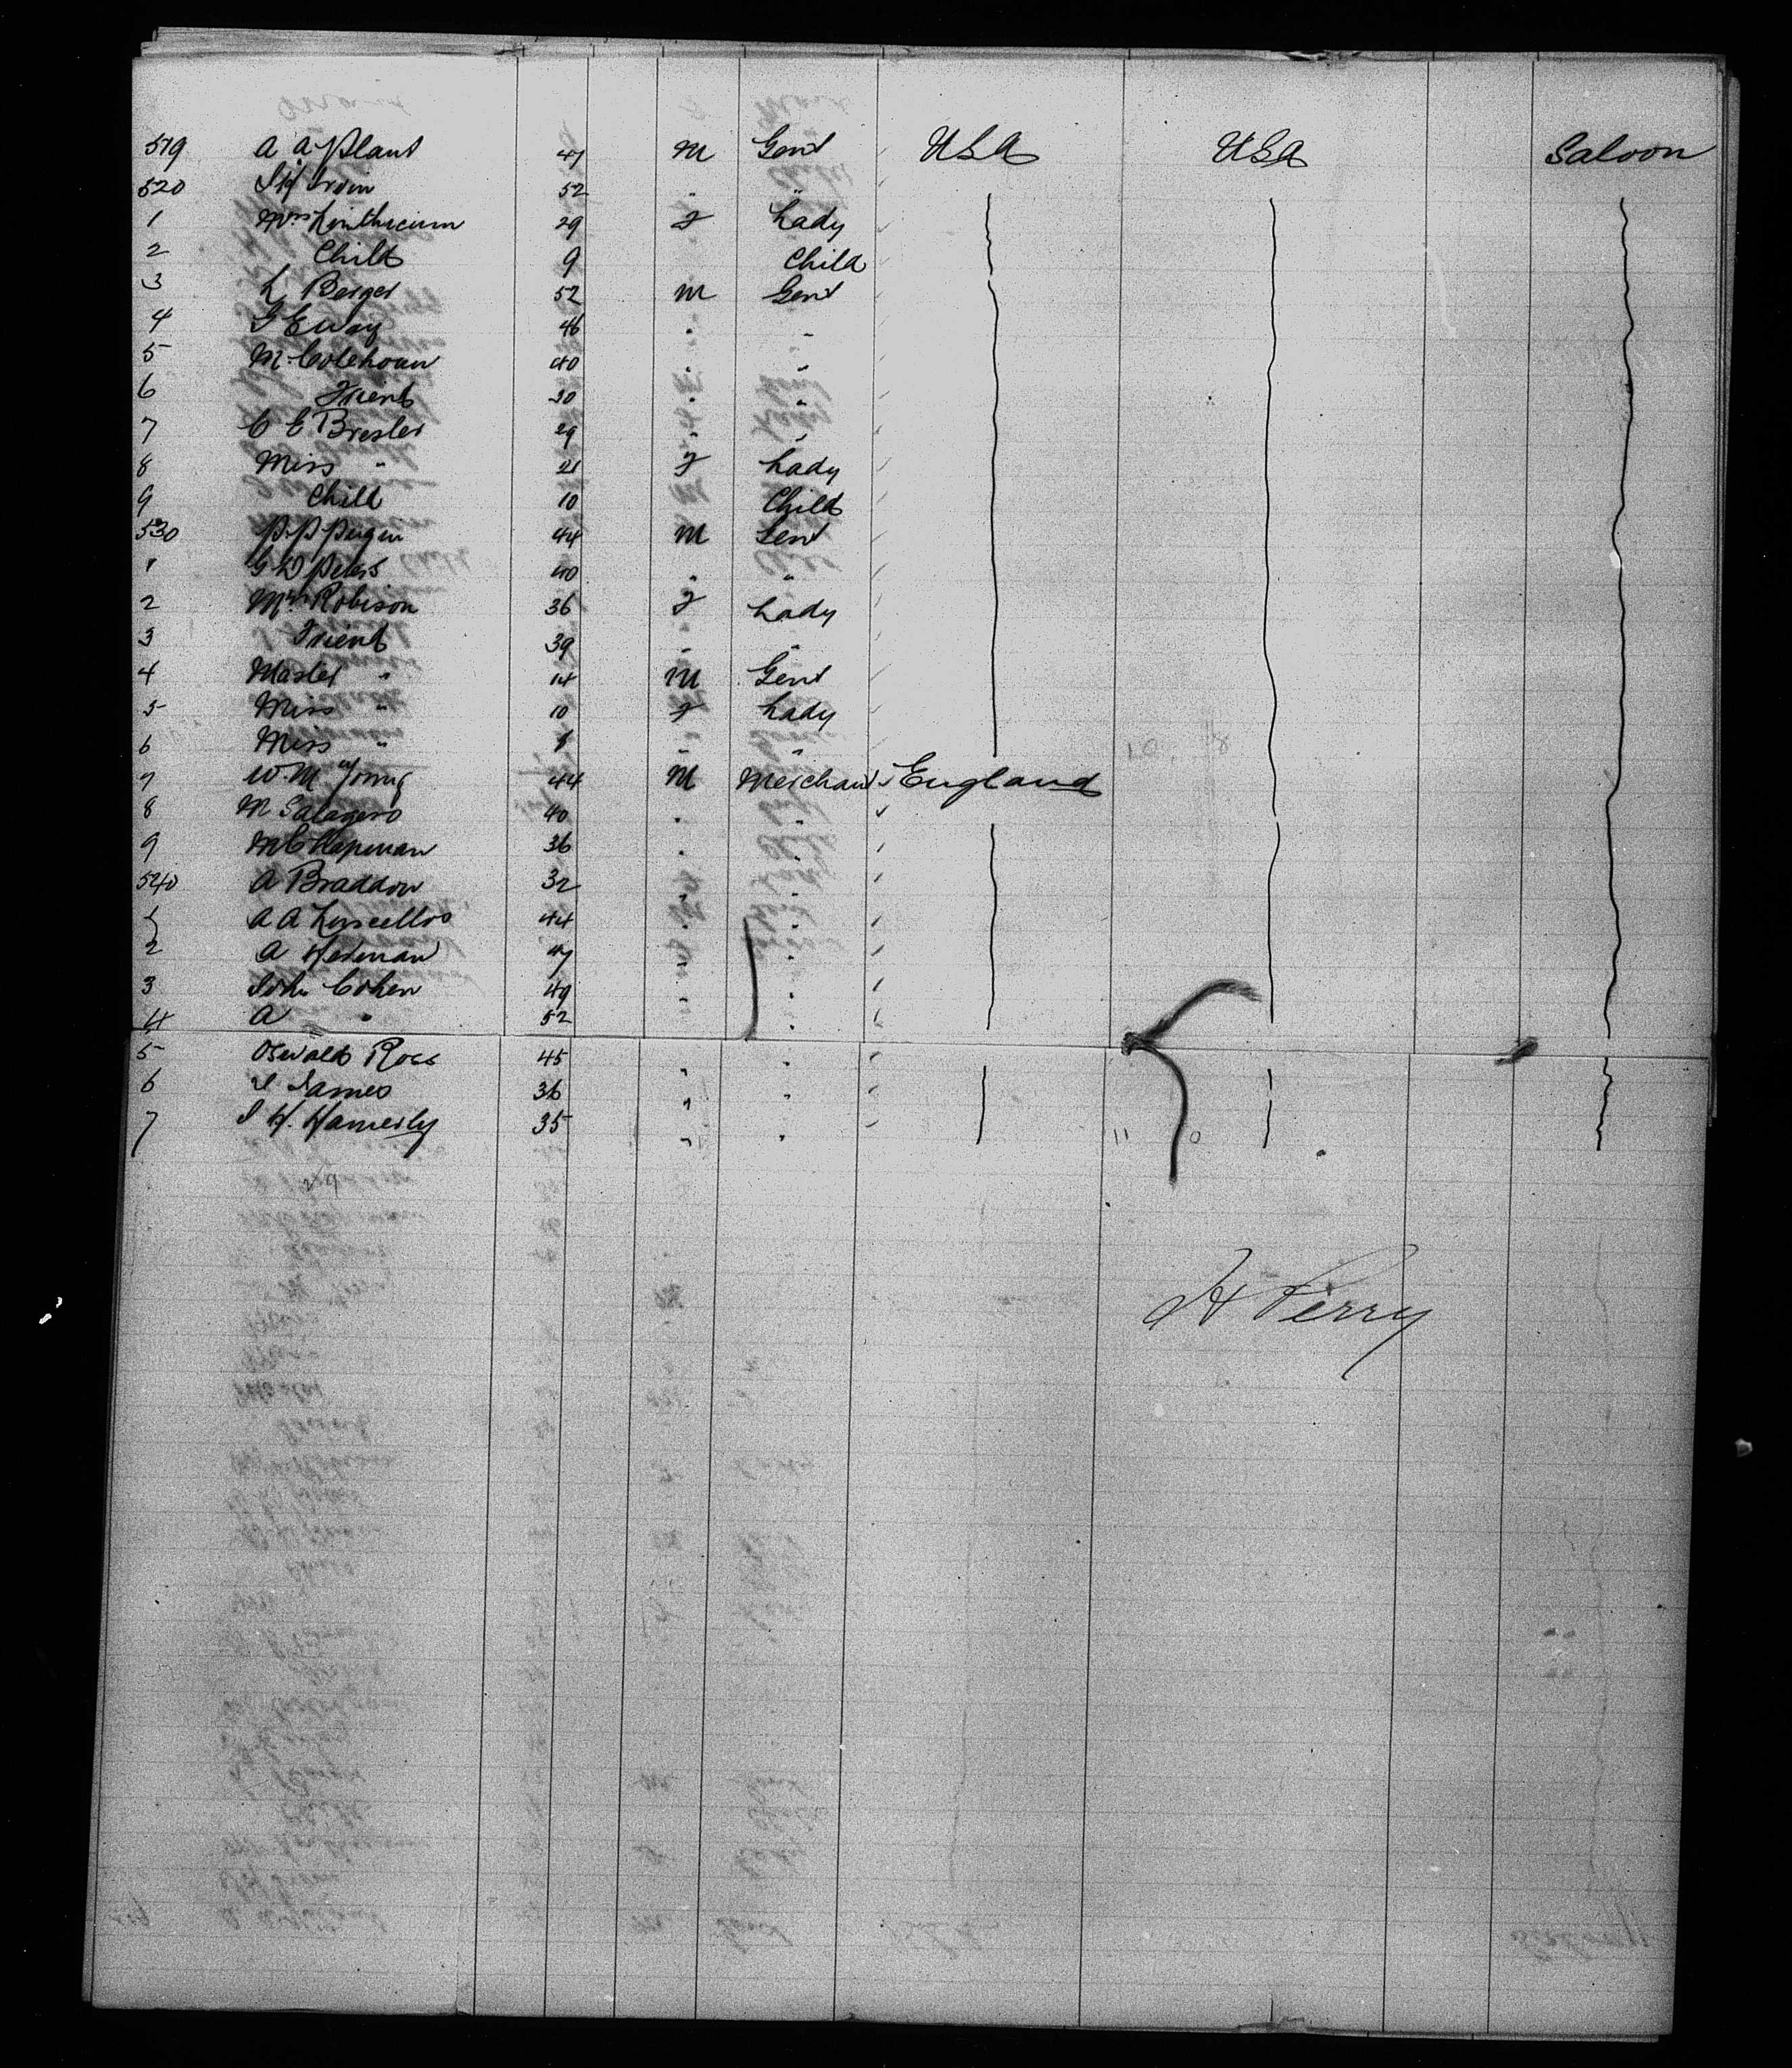 519 A A Plant 47 M Gent USA USA Saloon
520 Irvin 52 " "
1 Mrs Linthicum 29 F Lady
2 Child 9 Child
3 L Berger 52 M Gent
4 G E Way 46 " "
5 M. Colehoan 40 " "
6 Friend 30 " "
7 C E Bresler 29 " "
8 Miss " 21 F Lady
9 Child 10 Child
530 P. P. 44 M Gent
1 G D Peters 40 " "
2 Mrs Robison 36 F Lady
3 Friend 39 " "
4 Master " 14 M Gent
5 Miss " 10 F Lady
6 Miss " 8 " "
7 W. M Young 44 M Merchant England
8 M 40 " "
9 M C Hapeman 36 " "
540 A Braddon 32 " "
1 A A 44 " "
2 A Herman 47 " "
3 John Cohen 49 " "
4 A " 52 " "
5 Oswald Ross 45 " "
6 I James 36 " "
7 J H. Hamerly 35 " "
H Perry